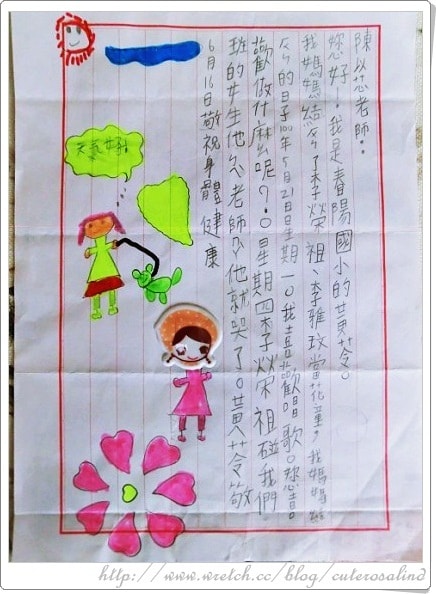 陳以芯老師：
您好，我是春陽國小的黃苓。
我媽媽結婚了李榮祖、李雅玟當花童，我媽媽結
婚的日子100年5月21日星期一。我喜歡唱歌。您喜
歡做什麼呢？。星期四李榮祖碰我們
班的女生他念老師ㄗㄞ他就哭了。黃苓敬
6月16日敬祝身體健康
天氣好!
http://www.wretch.cc/blog/cuterosalind